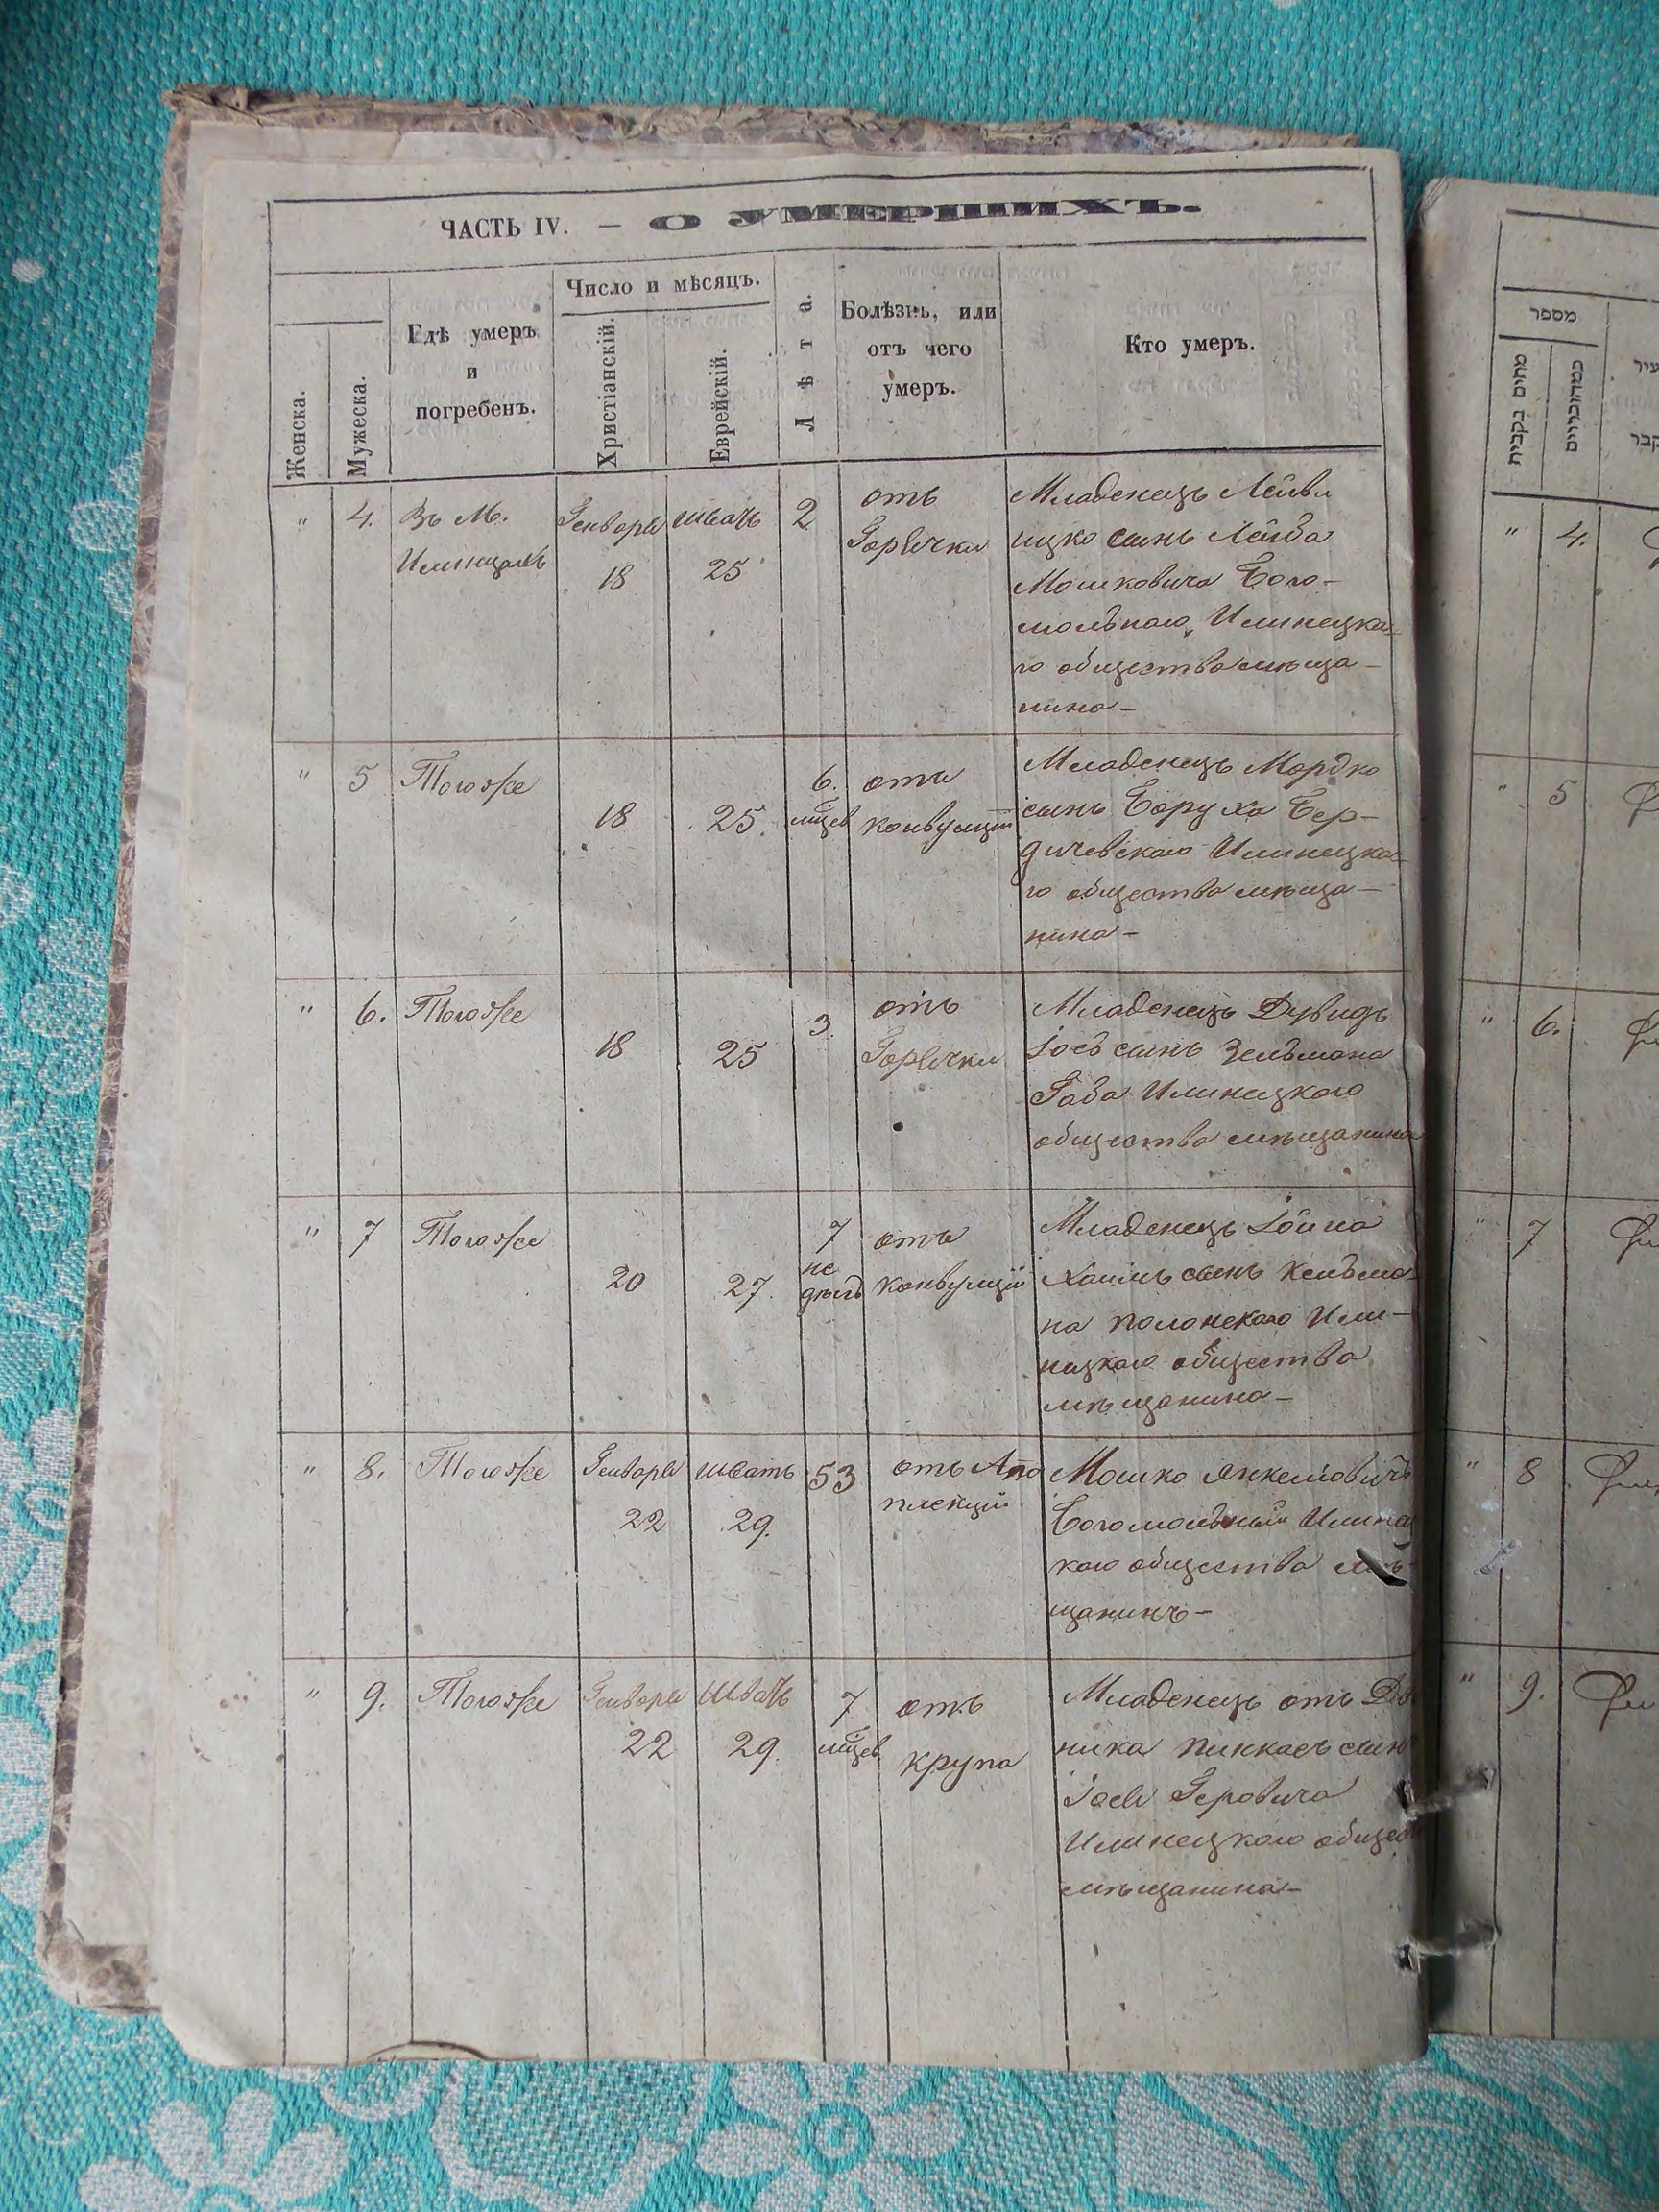 ЧАСТЬ IV. — О УМЕРШИХЪ.
Женска.
Мужеска.
Гдѣ умеръ
и
погребенъ.
Число и мѣсяцъ.
Христіанскій.
Еврейскій.
Лѣта.
Болѣзнь, или
отъ чего
умеръ.
Кто умеръ.
" 4. Въ М.
Илинцахъ
Генваря
18
Шватъ
25
2
отъ
Горячки
Младенецъ Лейви
ицко сынъ Лейба
Мошковича Бого-
мольнаго, Илинецка-
го общества мѣща-
нина-
" 5 Тогоже
18
25.
6.
мцев
отъ
конвулцiи
Младенецъ Мордко
сынъ Боруха Бер-
дичевскаго Илинецка-
го общества мѣща-
нина-
" 6. Тогоже
18
25
3.
отъ
Горячки
Младенецъ Дувидъ
Iосъ сынъ Зельмана
Илинецкаго
общества мѣщанина
" 7 Тогоже
20
27.
7
не
дѣль
отъ
конвулцiй
Младенецъ Iойна
Хаимъ сынъ Кельма-
на Полонскаго Или-
нецкаго общества
мѣщанина-
" 8. Тогоже
Генваря
22
Шватъ
29.
53
отъ Апо
плекцiи
Мошко Янкелiовичъ
Богомольный Илинец
каго общества мѣ-
щанинъ-
" 9. Тогоже
Генваря
22
Шватъ
29.
7
мцев
отъ
крупа
Младенецъ отъ Дво
ника Пинкасъ сынъ
Iося Геровича
Илинецкаго общес
мѣщанина-
מספר
" 4.
" 5
" 6.
" 7
" 8
" 9.